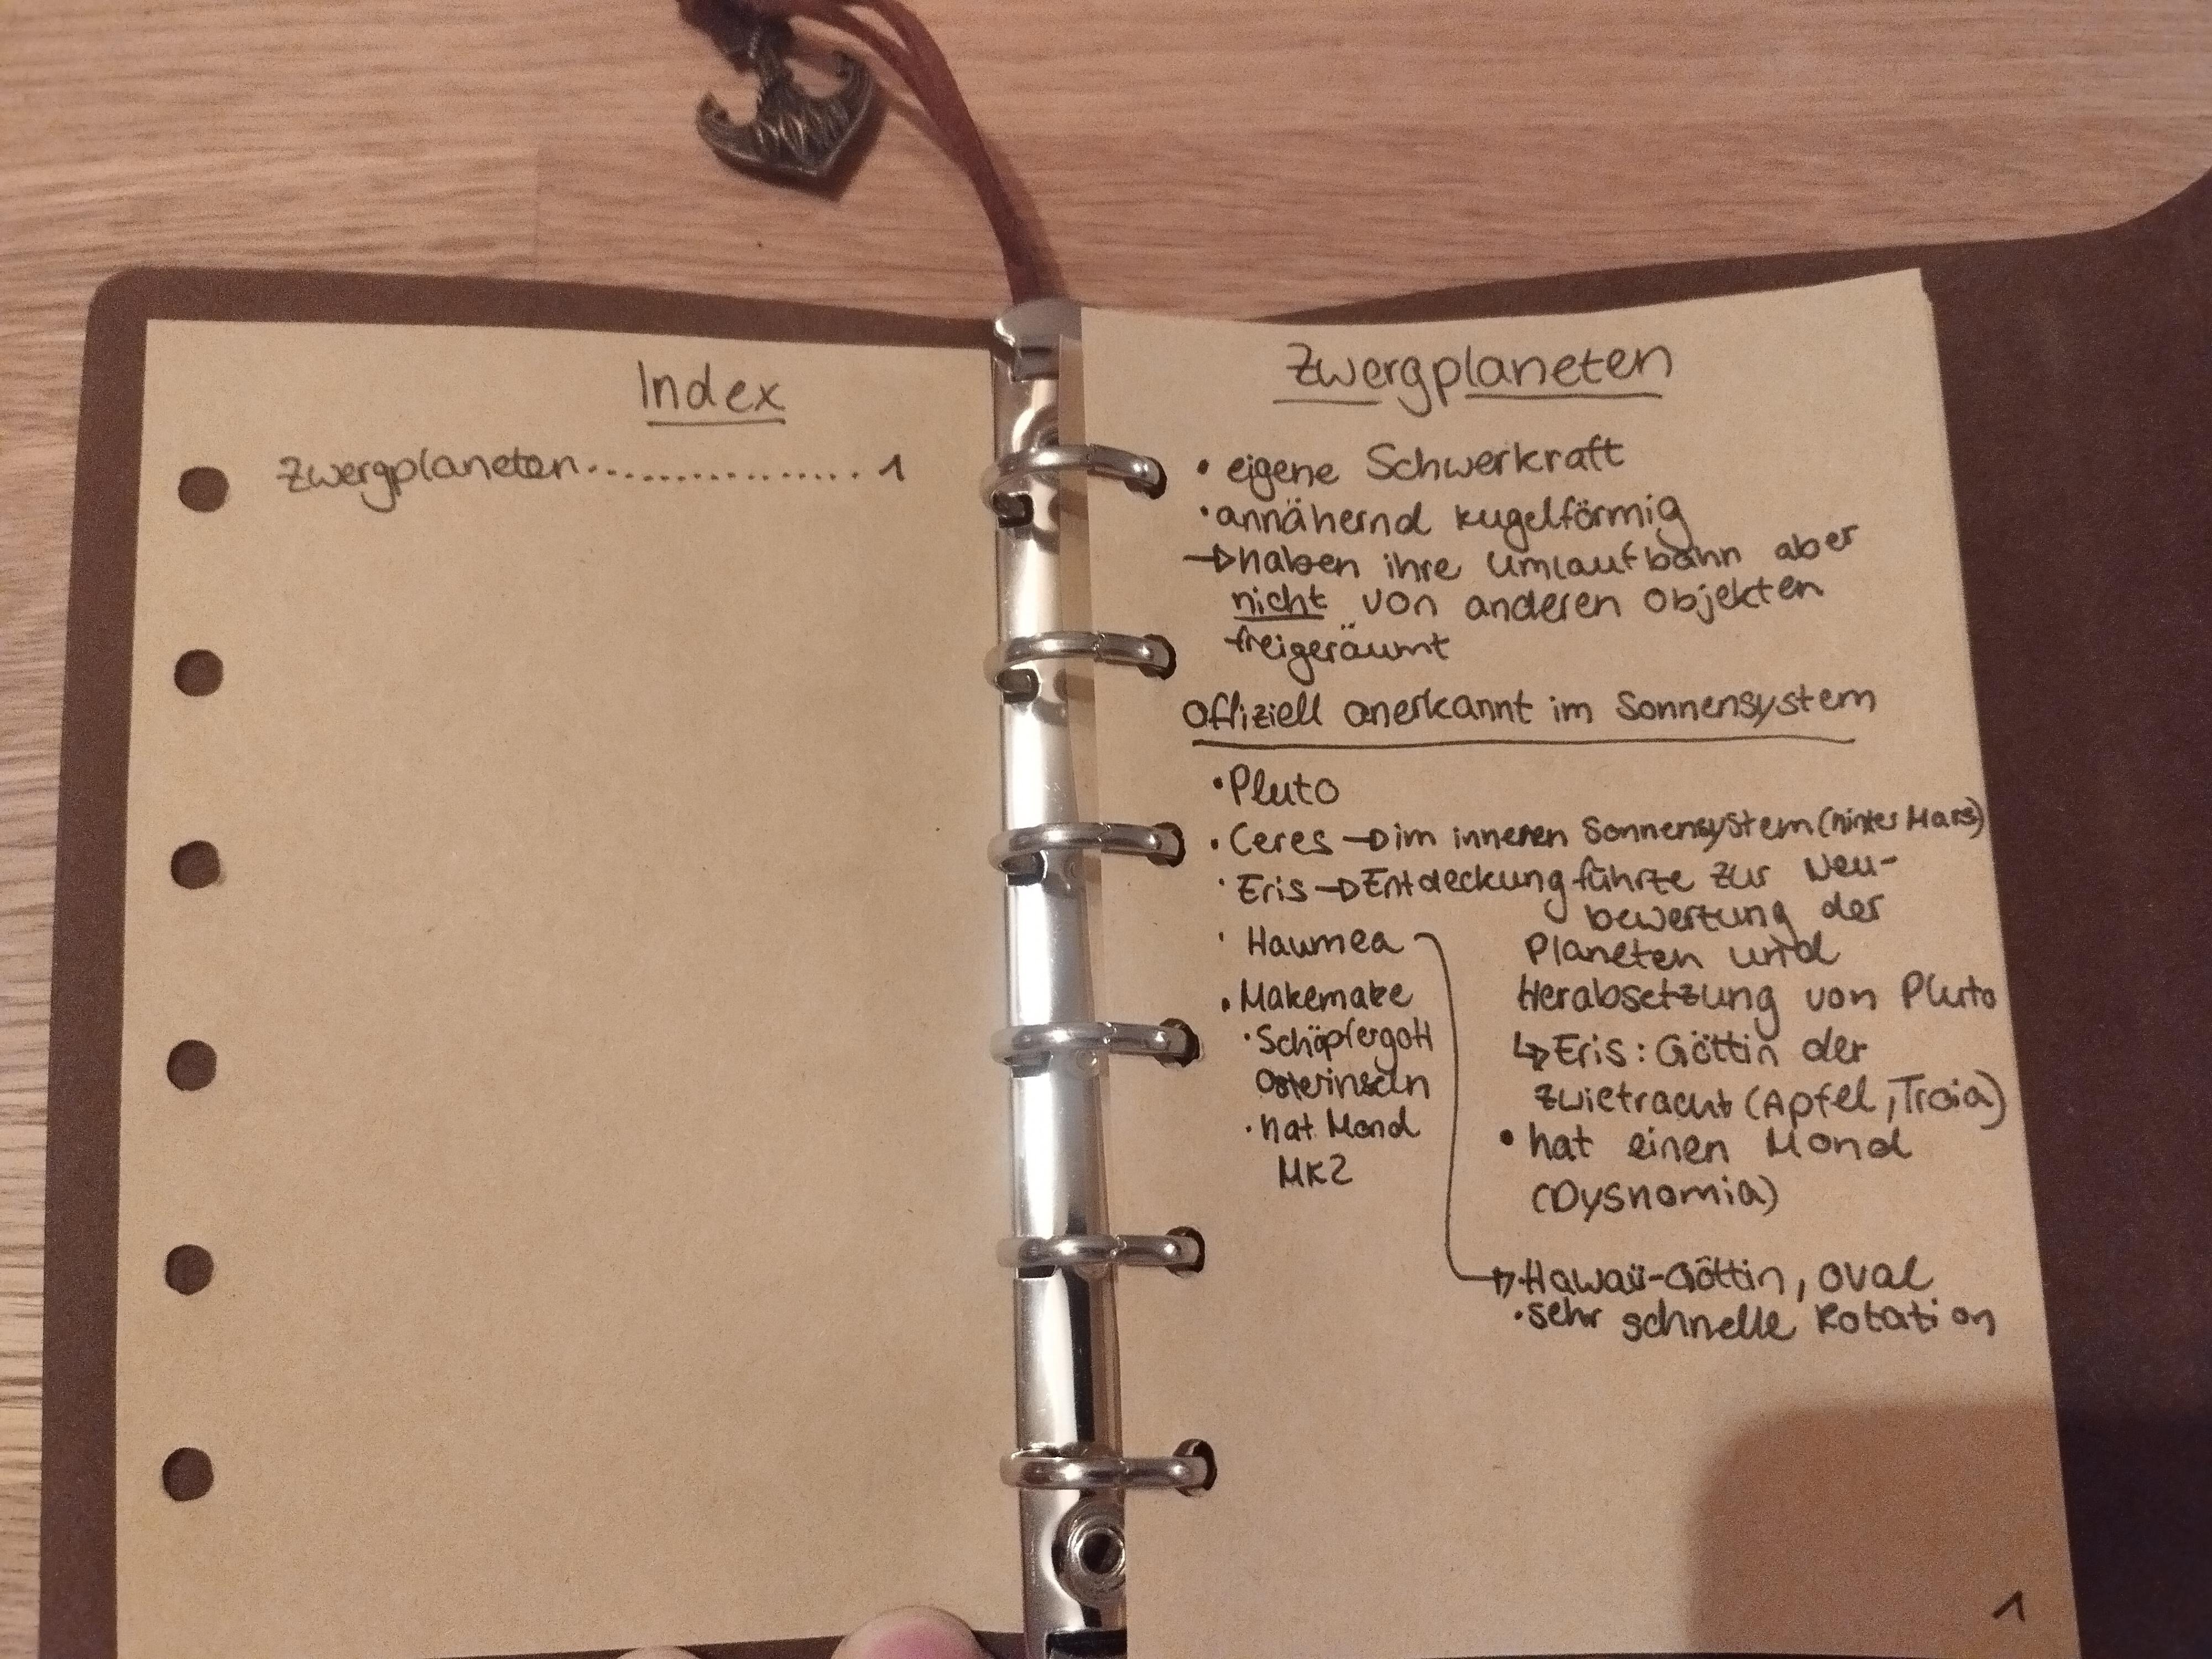 Index
Zwergplaneten................1
Zwergplaneten
• eigene Schwerkraft
• annähernd kugelförmig
→ haben ihre Umlaufbahn aber
nicht von anderen Objekten
freigeräumt
Offiziell anerkannt im Sonnensystem
• Pluto
• Ceres → im inneren Sonnensystem (hinter Mars)
• Eris → Entdeckung führte zur Neu-
bewertung der
Planeten und
Herabsetzung von Pluto
↳ Eris: Göttin der
Zwietracht (Apfel, Troia)
• hat einen Mond
(Dysnomia)
• Haumea
→ Hawaii-Göttin, oval
• sehr schnelle Rotation
• Makemake
• Schöpfergott
Osterinseln
• hat Mond
MK2
1